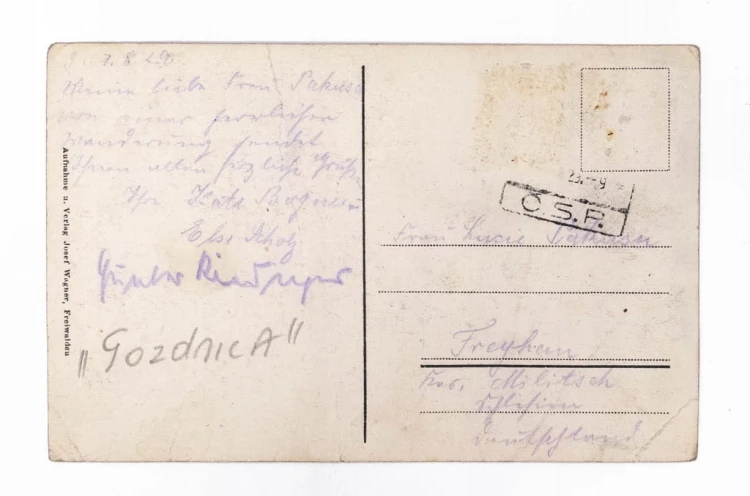 Meine liebe Frau
von einer herrlichen
Wanderung sendet
Ihnen allen herzliche Grüße
Ihre
Else
Günter
"GOZDNICA"
Aufnahme u. Verlag Josef Wagner, Freiwaldau
Č.S.R.
Frau Lucie
Freyhan
Militsch
Schlesien
Deutschland